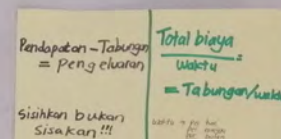 Pendapatan - Tabungan
= pengeluaran
Sisihkan bukan
Sisakan!!!
Total biaya
Waktu
=
= Tabungan/waktu
Waktu → per hari